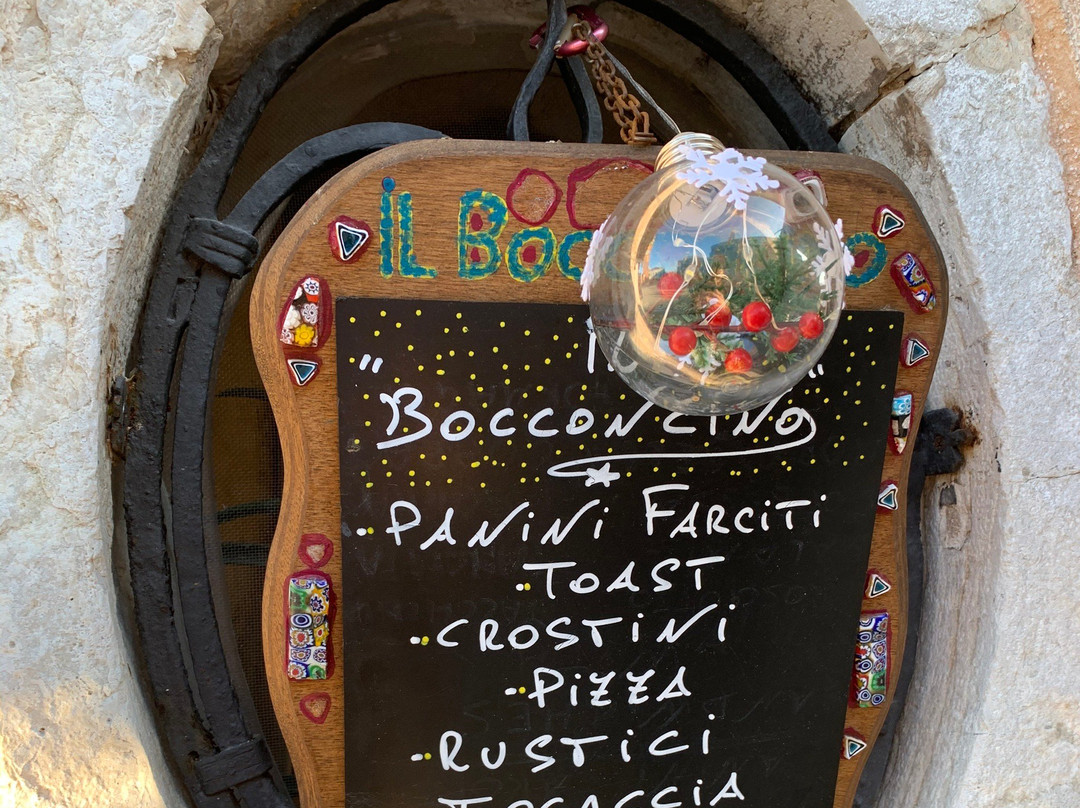 IL BOCC O
" IL "
BOCCONCINO
. PANINI FARCITI
. TOAST
. CROSTINI
. PIZZA
. RUSTICI